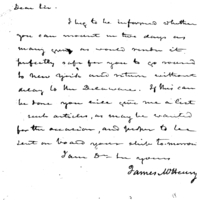 Dear Sir.
I beg to be informed whether
you can mount in two days as
many guns as would render it
perfectly safe for you to go round
to New York and return without
delay to the Delaware. If this can
be done you will give me a list
such articles, as may be wanted
for the occasion, and prepare to be
sent on board your ship to-morrow
I am Dr Sir yours
James McHenry